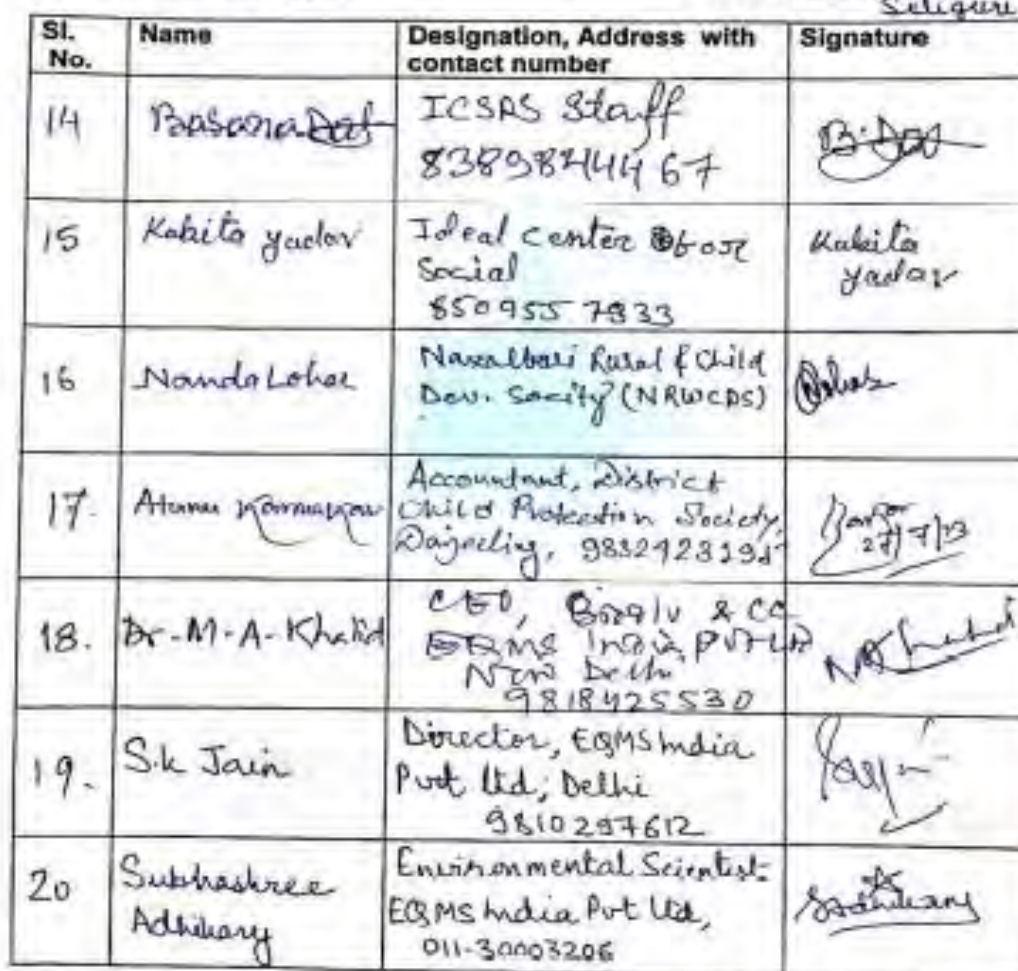 Siliguri
Sl. No. Name Designation, Address with contact number Signature
14 Basana Das ICSAS Staff B. Das
8389844467
15 Kabita yadav Ideal center for Social Kabita yadav
850955 7933
16 Nanda Lohar Naxalbari Rural & Child
Dev. Socity (NRWCDS)
17. Atanu Karmakar Accountant, District
Child Protection Society,
Darjeeling, 27/7/13
18. Dr. M. A. Khalid CEO,
EQMS India PVT Ltd
New Delhi
9818425530
19. S.k Jain Director, EQMS India
Pvt Ltd; Delhi
9810297612
20 Subhashree Adhikary Environmental Scientist
EQMS India Pvt Ltd, SAdhikary
011-30003206